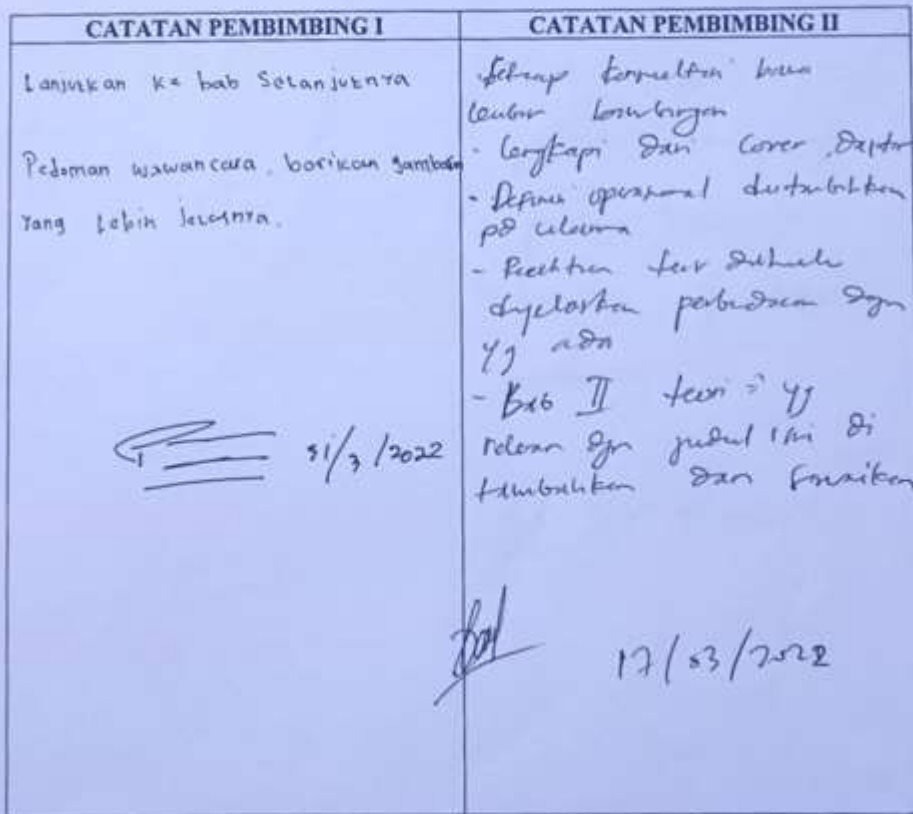 CATATAN PEMBIMBING I
Lanjutkan ke bab Selanjutnya
Pedoman wawancara, berikan gambaran
Yang Lebih Jelasnya.
31/3/2022
CATATAN PEMBIMBING II
Setiap konsultasi bawa
lembar bimbingan
- lengkapi dari Cover, Daftar
- Definisi operasional ditambahkan
pd
-
dijelaskan perbedaan dgn
yg ada
- Bab II teori² yg
relevan dgn judul ini di
tambahkan dan sesuaikan
17/03/2022